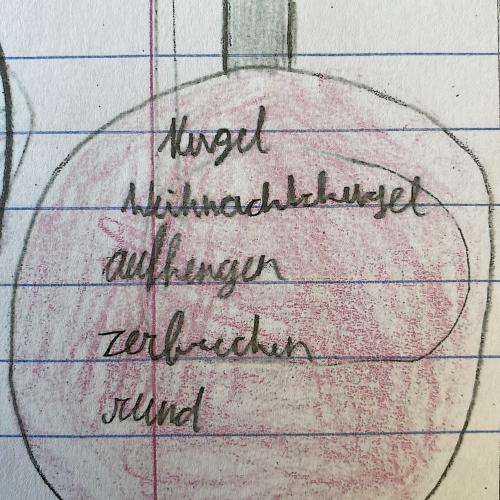 Kugel
Weihnachtskugel
aufhengen
zerbrechen
rund